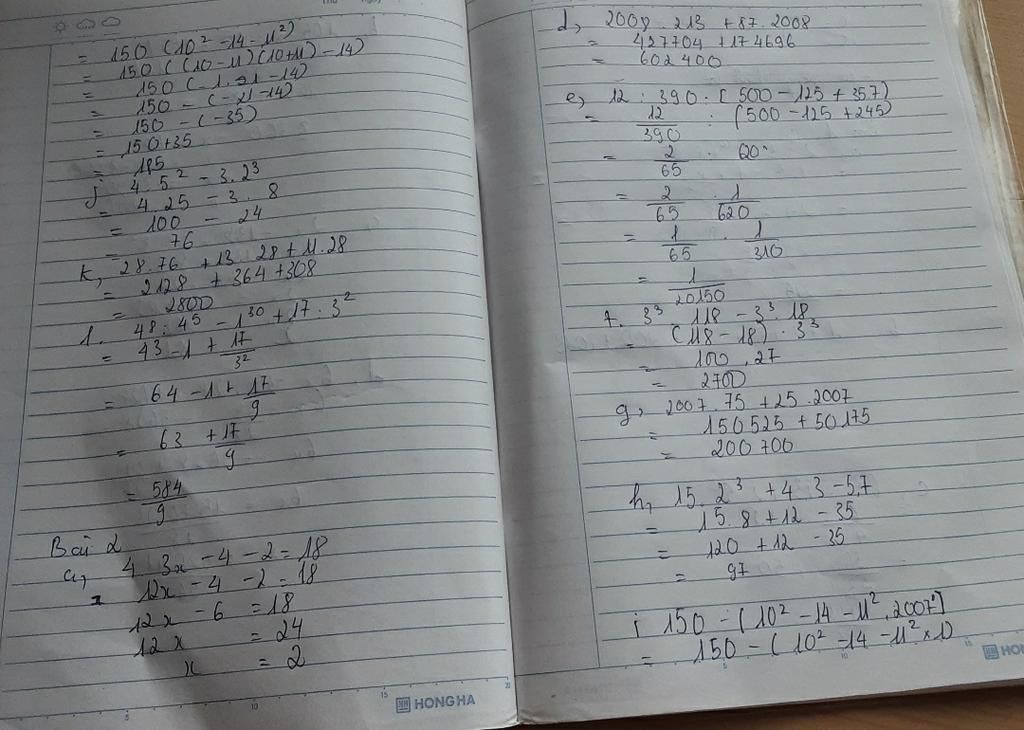 = 150 (10² - 14 - 11²)
= 150 ( (10 - 11) (10+11) - 14)
= 150 (-1. 21 - 14)
= 150 - (-21-14)
= 150 - (-35)
= 150 + 35
= 185
j 4. 5² - 3. 2³
= 4. 25 - 3. 8
= 100 - 24
= 76
k, 28.76 + 13 28 + 11.28
= 2128 + 364 + 308
= 2800
l. 48 : 45 - 1³⁰ + 17 . 3²
= 43 - 1 + 17/3²
= 64 - 1 + 17/9
= 63 + 17/9
= 584/9
Bài 2
a, 4 3x - 4 - 2 = 18
12x - 4 - 2 = 18
12x - 6 = 18
12x = 24
x = 2
HONG HA
d, 2008 . 213 + 87 . 2008
= 427704 + 174696
= 602400
e, 12 : 390 : [ 500 - 125 + 357)
= 12/390 : (500 - 125 + 245)
= 2/65 . 620
= 2/65 . 1/620
= 1/65 . 1/310
= 1/20150
f. 3³ 118 - 3³ 18
= (118 - 18) . 3³
= 100 . 27
= 2700
g, 2007. 75 + 25 .2007
= 150525 + 50175
= 200700
h, 15. 2³ + 4 3 - 5.7
= 15. 8 + 12 - 35
= 120 + 12 - 35
= 97
i 150 - (10² - 14 - 11² . 2007°]
= 150 - ( 10² - 14 - 11² x 1)